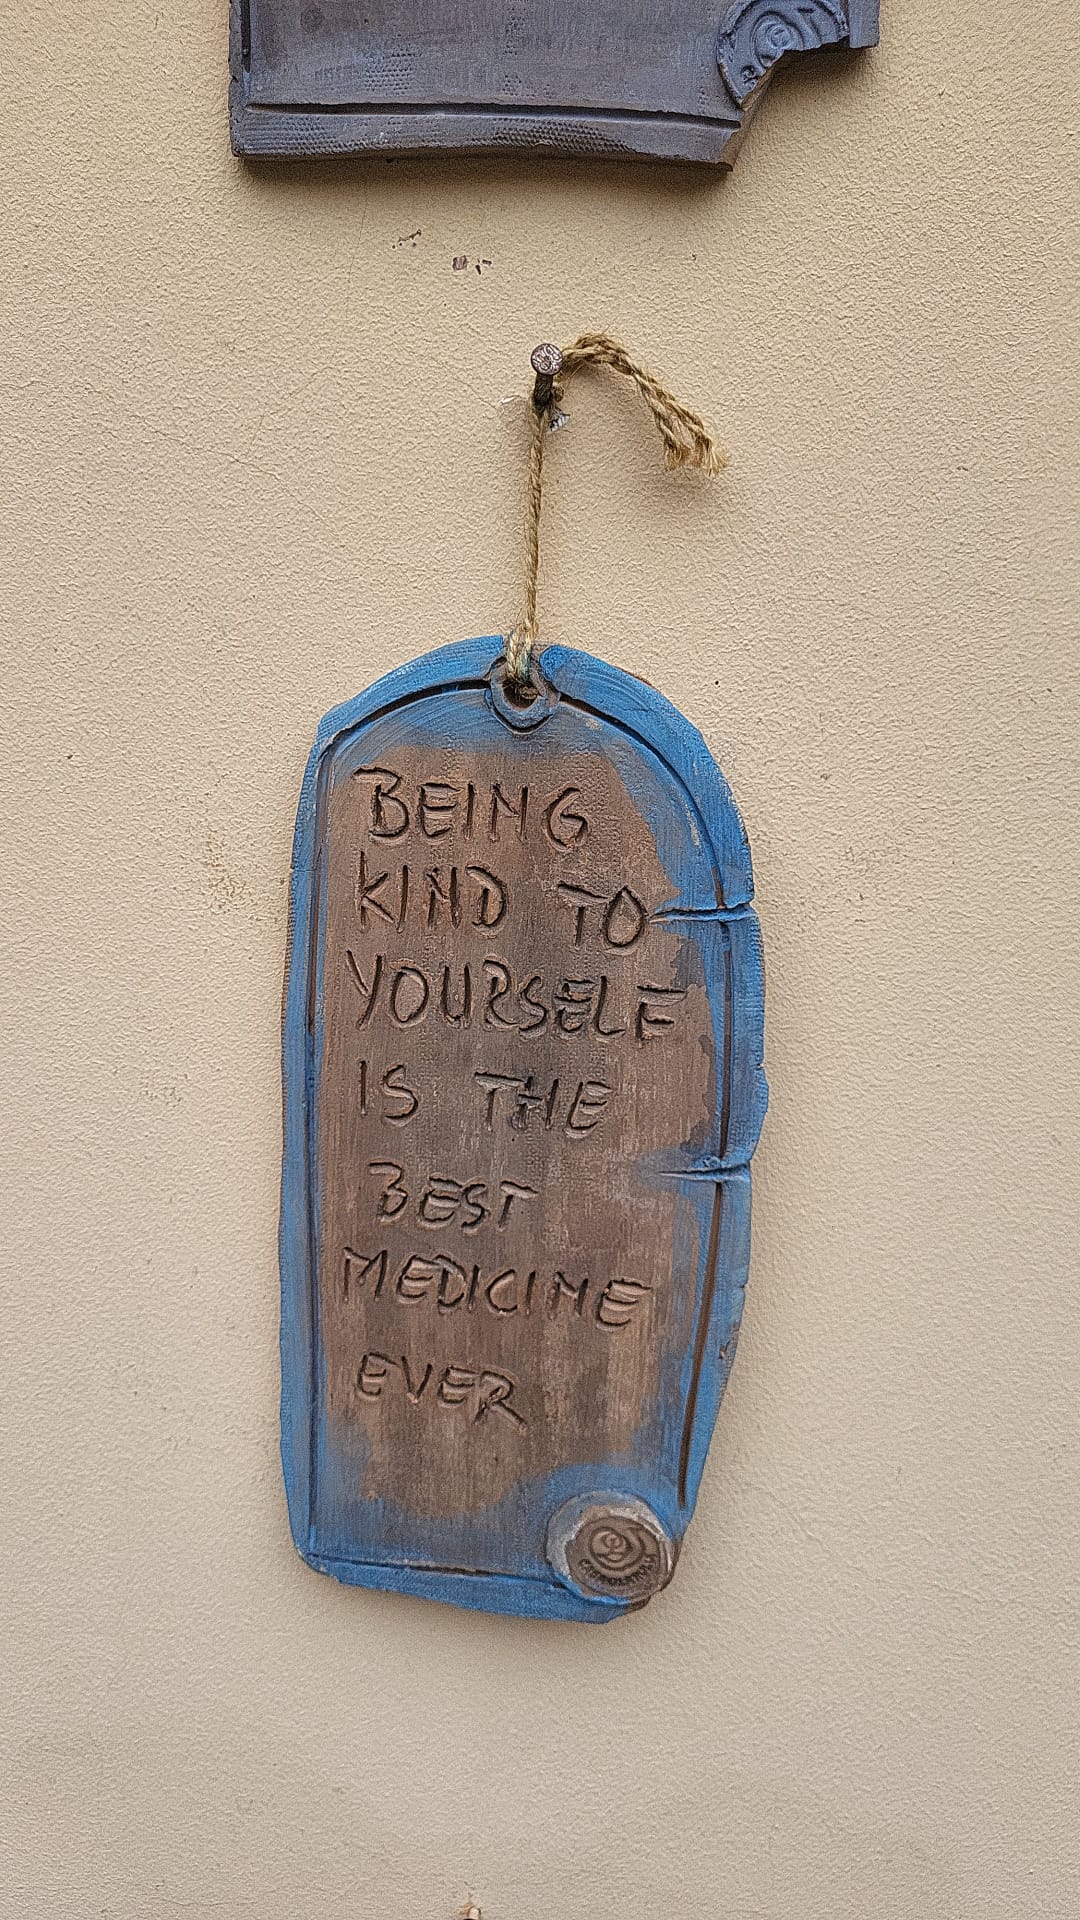 BEING
KIND TO
YOURSELF
IS THE
BEST
MEDICINE
EVER